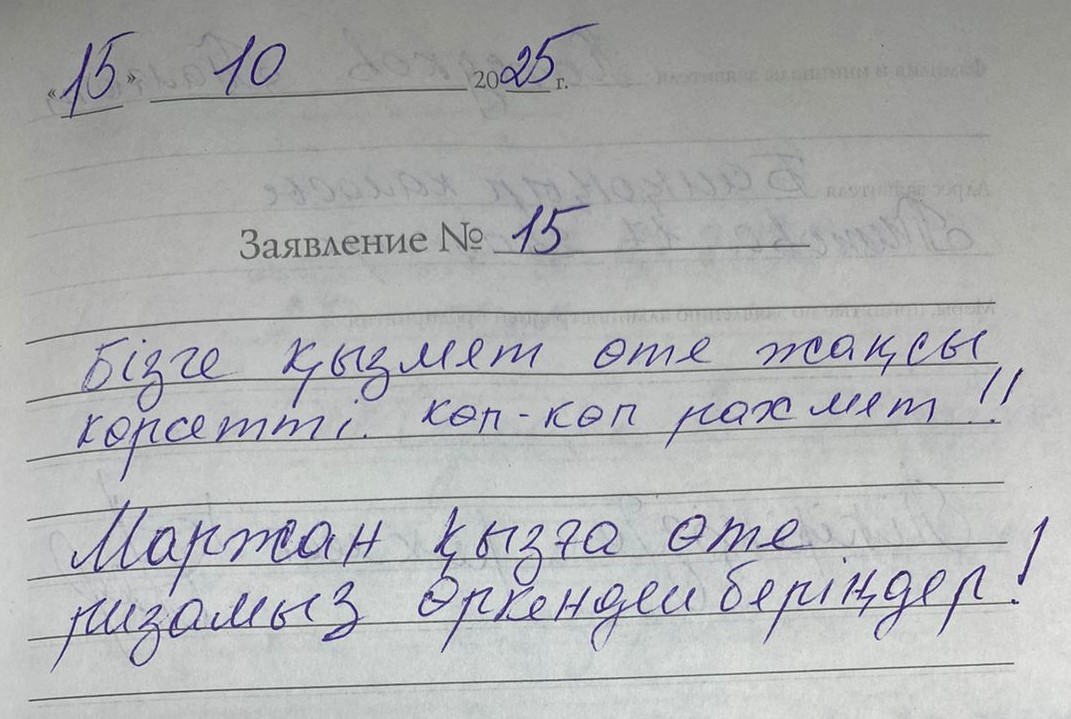 «15» 10 2025 г.
Заявление № 15
Бізге қызмет өте жақсы
көрсетті. көп-көп рахмет!!
Маржан қызға өте
ризамыз Өркендей беріңдер!